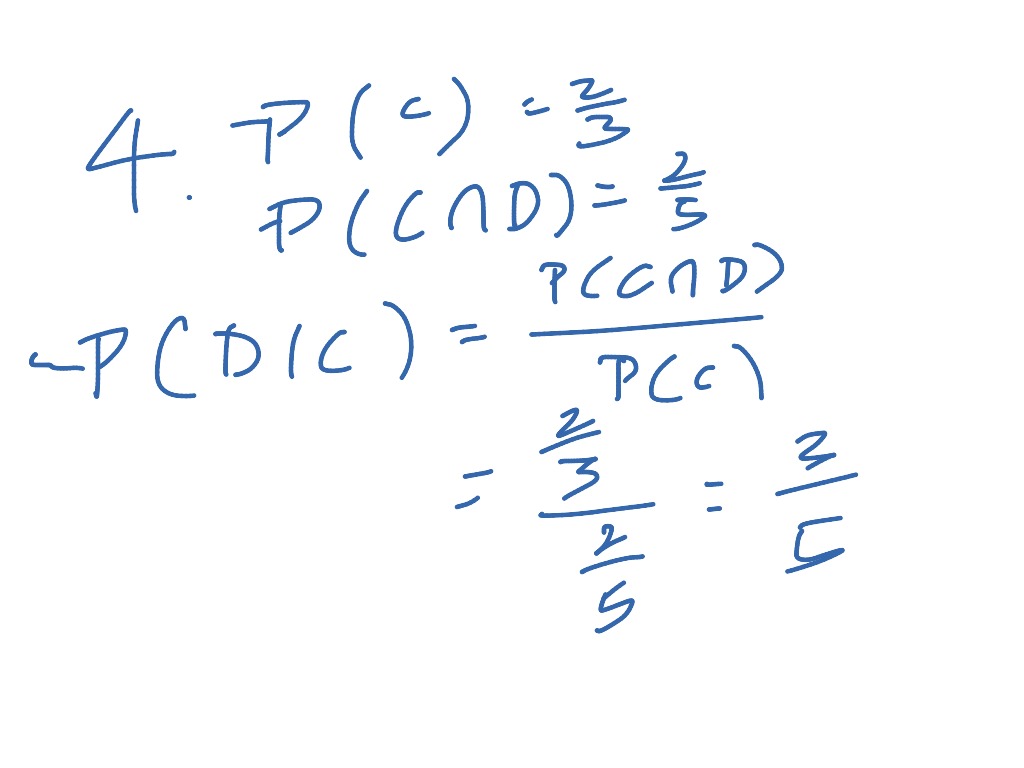 4. P(C) = 2/3
P(C∩D) = 2/5
P(D|C) = P(C∩D)/P(C)
= (2/3)/(2/5) = 3/5